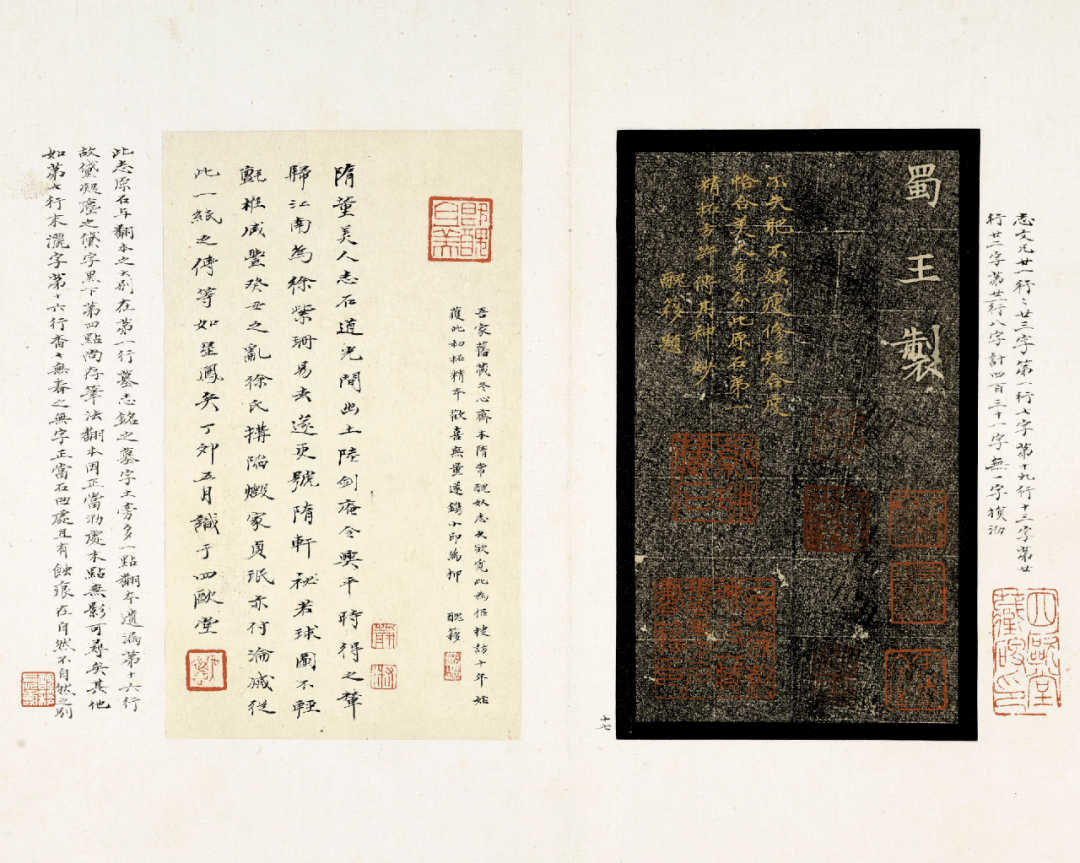 志文凡廿一行行廿三字第一行七字第十九行十三字第廿
行廿二字第廿一行八字計四百三十一字無一字損泐
蜀王製
不失肥不嫌瘦修短合度
恰合美人身分此原石弟一
精拓方許得其神妙
醜簃題
十七
吾家舊藏冬心齋本隋常醜奴志久欲覓此為侶棲訪十年始
獲此初拓精本歡喜無量遂鐫小印為押
醜簃
隋董美人志石道光間出土陸劍庵令興平時得之輦
歸江南為徐紫珊易去遂更號隋軒祕若球圖不輕
氈椎咸豐癸丑之亂徐氏搆陷燬家貞珉亦付淪滅從
此一紙之傳等如星鳳矣丁卯五月識于四歐堂
此志原石與翻本之大別在第一行墓志銘之墓字土旁多一點翻本遺漏第十六行
故黛凝塵之黛字黑下第四點尚存筆法翻本因正當泐處末點無影可尋矣其他
如第七行末灑字第十六行香香無春之無字正當石凹處且有蝕痕在自然不自然之別